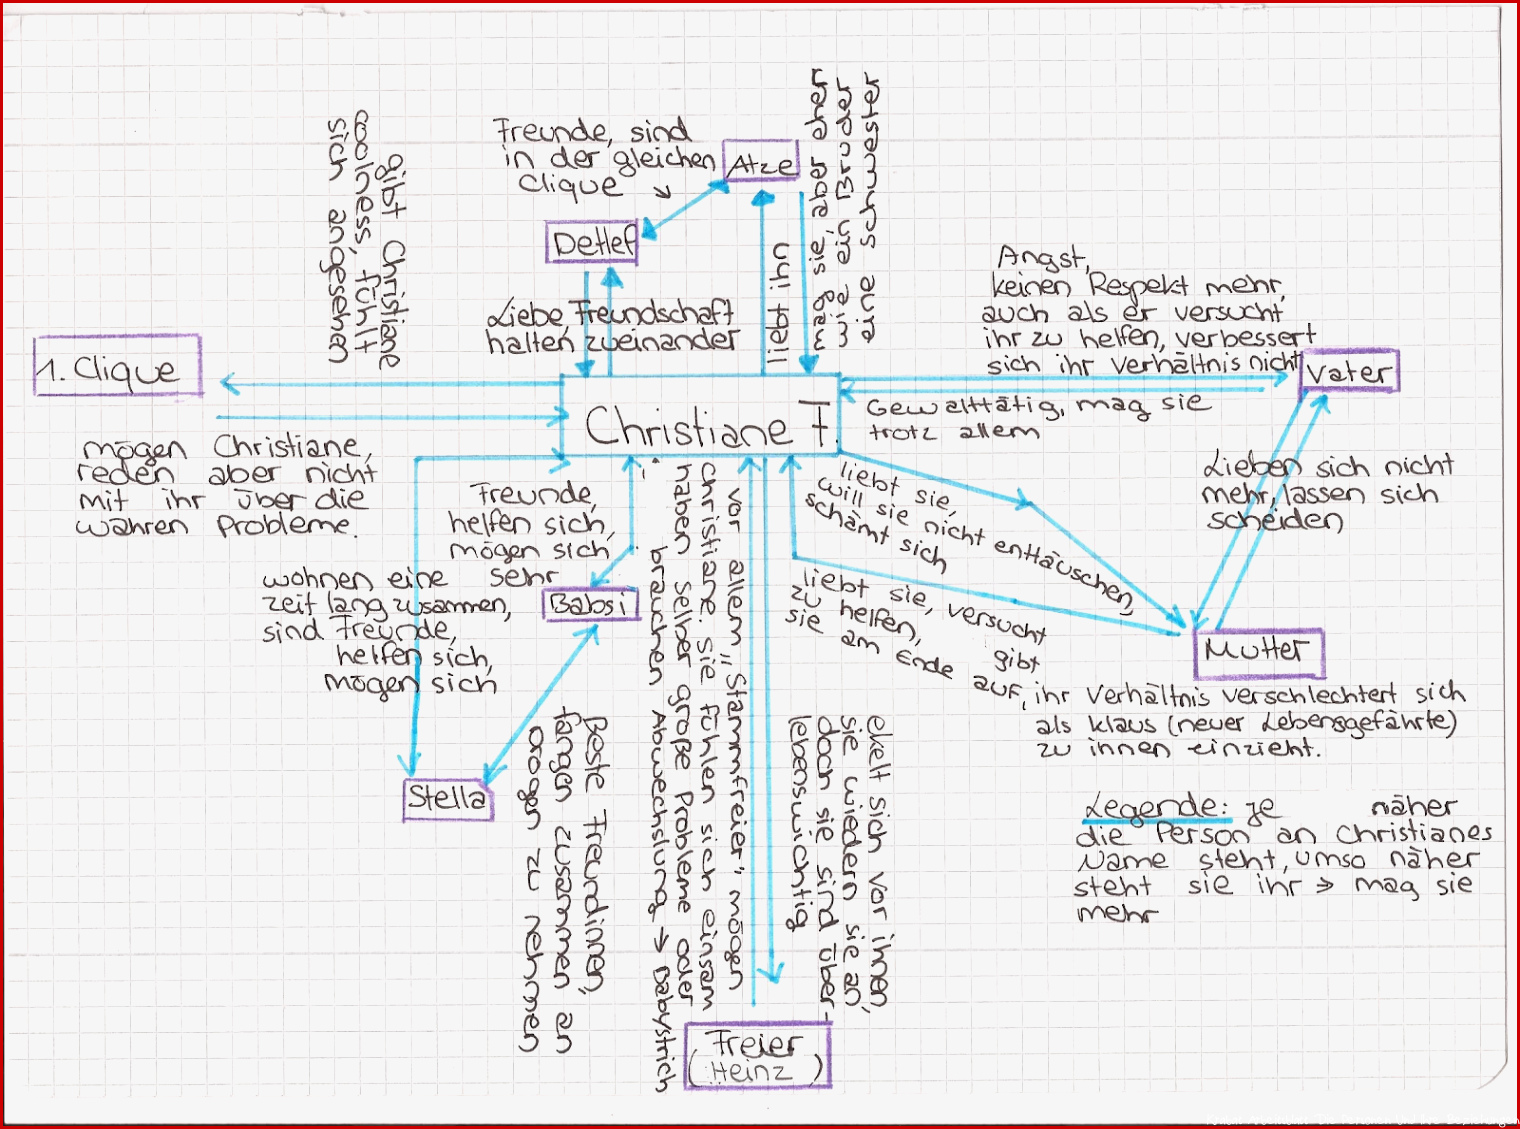 Freunde, sind
in der gleichen
Clique
Atze
mag sie, aber eher
wie ein Bruder
eine Schwester
liebt ihn
Detlef
Liebe, Freundschaft
halten zueinander
gibt Christiane
coolness, fühlt
sich angesehen
1. Clique
mögen Christiane,
reden aber nicht
mit ihr über die
wahren Probleme.
Christiane F.
Angst,
keinen Respekt mehr,
auch als er versucht
ihr zu helfen, verbessert
sich ihr Verhältnis nicht
Vater
Gewalttätig, mag sie
trotz allem
Lieben sich nicht
mehr, lassen sich
scheiden
liebt sie,
will sie nicht enttäuschen,
schämt sich
liebt sie, versucht
zu helfen, gibt
sie am Ende auf,
Mutter
ihr Verhältnis verschlechtert sich
als Klaus (neuer Lebensgefährte)
zu ihnen einzieht.
Freunde,
helfen sich,
mögen sich
sehr
Babsi
wohnen eine
zeit lang zusammen,
sind Freunde,
helfen sich,
mögen sich
Stella
Beste Freundinnen,
fangen zusammen an
Drogen zu nehmen
vor allem „Stammfreier" mögen
Christiane. Sie fühlen sich einsam
haben selber große Probleme oder
brauchen Abwechslung → Babystrich
ekelt sich vor ihnen,
sie wiedern sie an,
doch sie sind über-
lebenswichtig
Freier
(Heinz)
Legende: Je näher
die Person an Christianes
Name steht, umso näher
steht sie ihr → mag sie
mehr